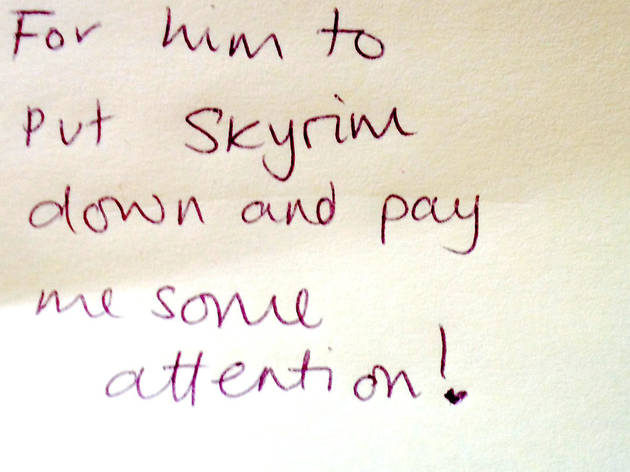 For him to
put Skyrim
down and pay
me some
attention!